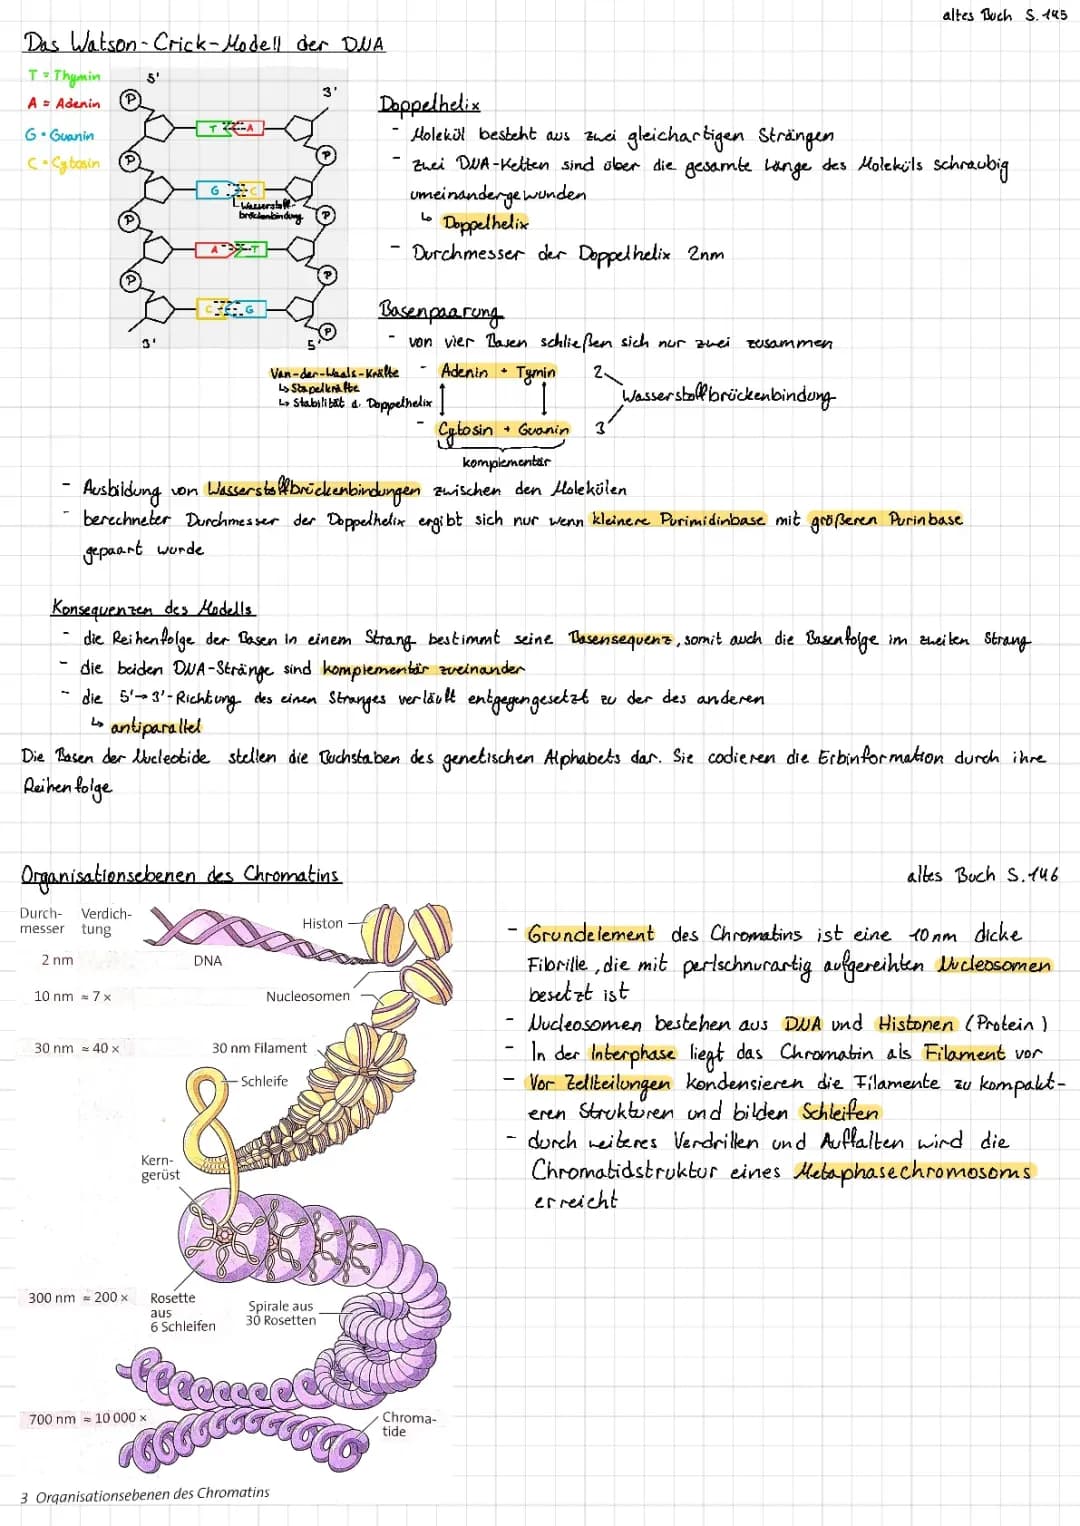 altes Buch S. 145
Das Watson-Crick-Modell der DNA
T = Thymin
A = Adenin
G = Guanin
C = Cytosin
5'
3'
P
P
P
P
P
P
P
P
T A
G C
Wasserstoff-
brückenbindung
A T
C G
3'
5'
Doppelhelix
- Molekül besteht aus zwei gleichartigen Strängen
- zwei DNA-Ketten sind über die gesamte Länge des Moleküls schraubig
umeinandergewunden
↳ Doppelhelix
- Durchmesser der Doppelhelix 2nm
Basenpaarung
- von vier Basen schließen sich nur zwei zusammen
Van-der-Waals-Kräfte
↳ Stapelkräfte
↳ Stabilität d. Doppelhelix
- Adenin + Tymin 2
Wasserstoffbrückenbindung
- Cytosin + Guanin 3
komplementär
- Ausbildung von Wasserstoffbrückenbindungen zwischen den Molekülen
- berechneter Durchmesser der Doppelhelix ergibt sich nur wenn kleinere Purimidinbase mit größeren Purinbase
gepaart wurde
Konsequenzen des Modells
- die Reihenfolge der Basen in einem Strang bestimmt seine Basensequenz, somit auch die Basenfolge im zweiten Strang
- die beiden DNA-Stränge sind komplementär zueinander
- die 5'→3'-Richtung des einen Stranges verläuft entgegengesetzt zu der des anderen
↳ antiparallel
Die Basen der Nucleotide stellen die Buchstaben des genetischen Alphabets dar. Sie codieren die Erbinformation durch ihre
Reihenfolge
Organisationsebenen des Chromatins
altes Buch S. 146
Durch-
messer
Verdich-
tung
2 nm
10 nm ≈ 7 x
30 nm ≈ 40 x
300 nm ≈ 200 x
700 nm ≈ 10 000 x
Histon
DNA
Nucleosomen
30 nm Filament
Schleife
Kern-
gerüst
Rosette
aus
6 Schleifen
Spirale aus
30 Rosetten
Chroma-
tide
3 Organisationsebenen des Chromatins
- Grundelement des Chromatins ist eine 10nm dicke
Fibrille, die mit perlschnurartig aufgereihten Nucleosomen
besetzt ist
- Nucleosomen bestehen aus DNA und Histonen (Protein)
- In der Interphase liegt das Chromatin als Filament vor
- Vor Zellteilungen kondensieren die Filamente zu kompakt-
eren Strukturen und bilden Schleifen
- durch weiteres Verdrillen und Auffalten wird die
Chromatidstruktur eines Metaphasechromosoms
erreicht